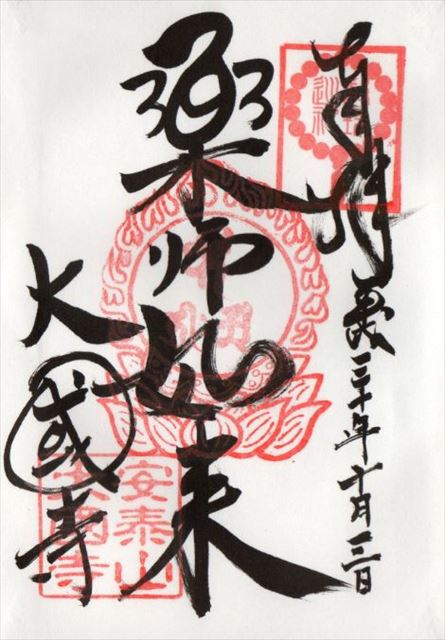 奉拝
平成三十年十月三日
薬師如来
大國寺
安泰山
大國寺